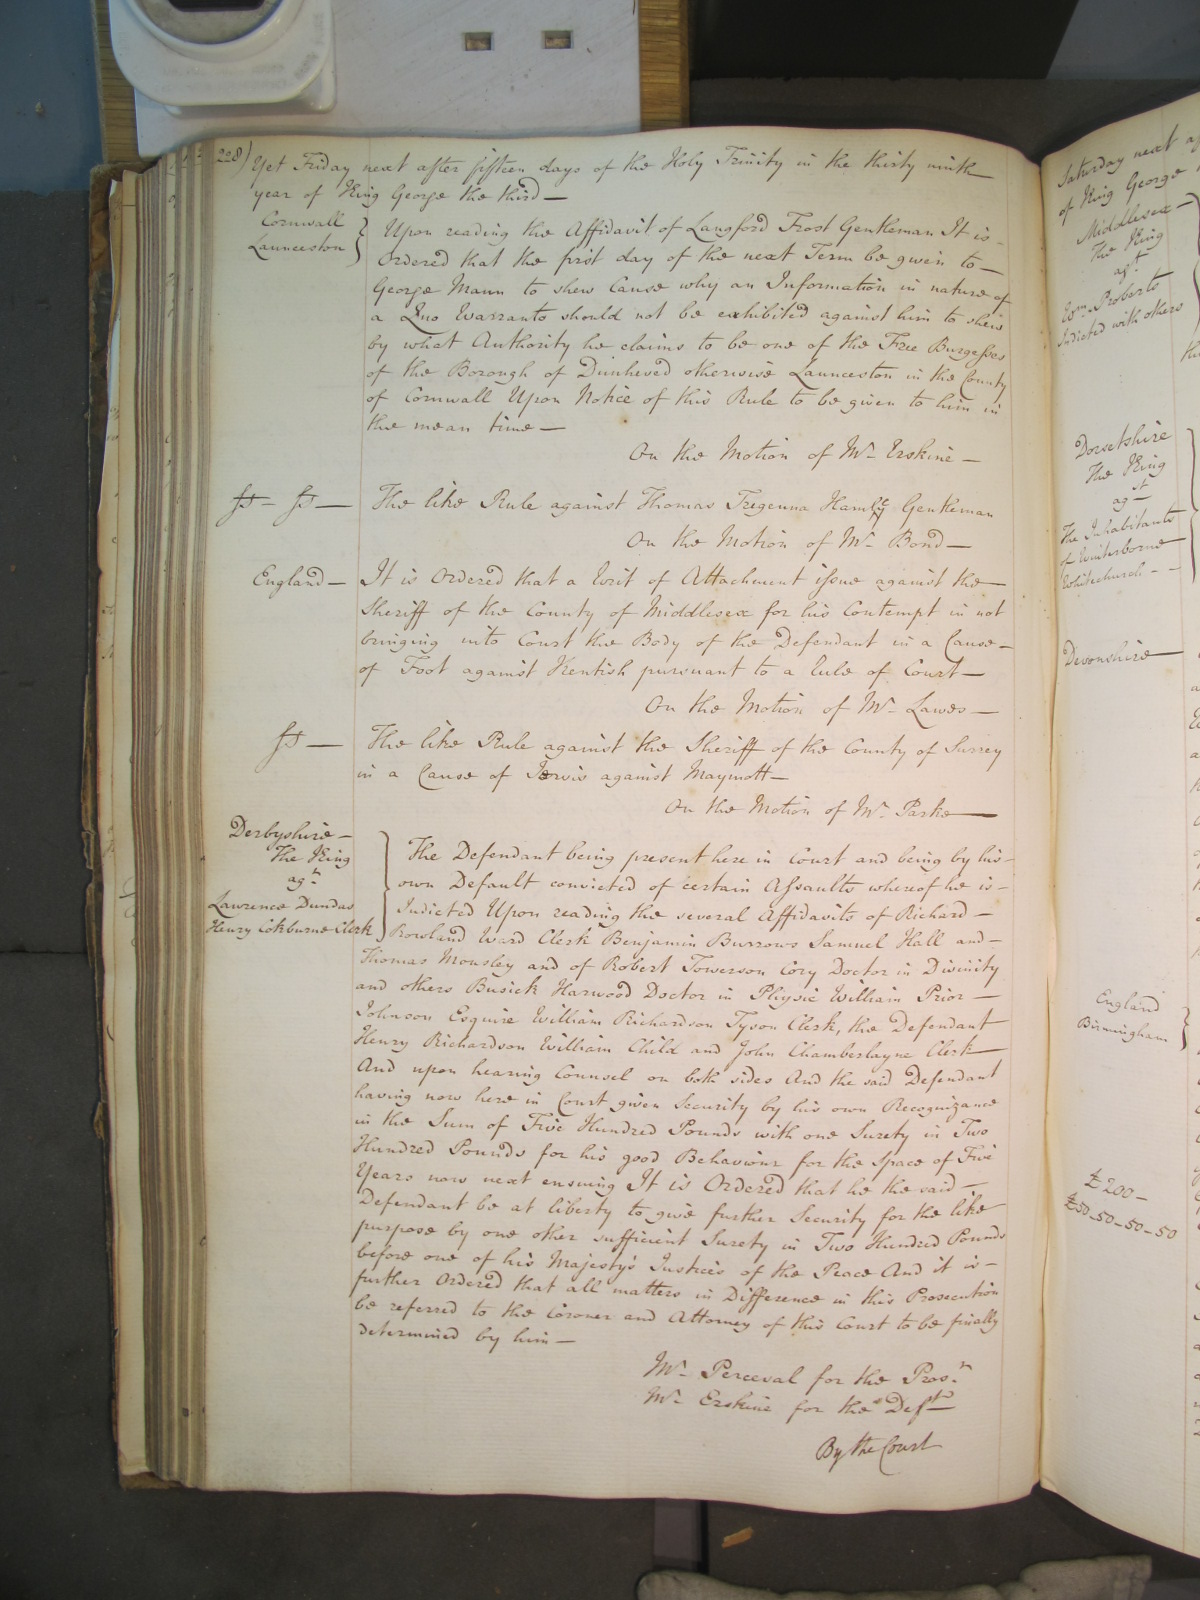 228) Yet Friday next after fifteen days of the Holy Trinity in the thirty ninth
year of King George the third —
Cornwall
Launceston
Upon reading the Affidavit of Langford Frost Gentleman It is -
Ordered that the first day of the next Term be given to —
George Mann to shew Cause why an Information in nature of
a Quo Warranto should not be exhibited against him to shew
by what Authority he claims to be one of the Free Burgesses
of the Borough of Dunheved otherwise Launceston in the County
of Cornwall Upon Notice of this Rule to be given to him in
the mean time —
On the Motion of Mr Erskine —
The like Rule against Thomas Tregenna Hamly Gentleman
On the Motion of Mr Bond —
England — It is Ordered that a Writ of Attachment issue against the —
Sheriff of the County of Middlesex for his Contempt in not
bringing into Court the Body of the Defendant in a Cause —
of Foot against Kentish pursuant to a Rule of Court —
On the Motion of Mr Lawes —
The like Rule against the Sheriff of the County of Surrey
in a Cause of Jervis against Maymott —
On the Motion of Mr Parke —
Derbyshire —
The King
agt
Lawrence Dundas
Henry Cokburne Clerk
The Defendant being present here in Court and being by his -
own Default convicted of certain Assaults whereof he is -
Indicted Upon reading the several Affidavits of Richard —
Rowland Ward Clerk Benjamin Burrows Samuel Hall and —
Thomas Mousley and of Robert Towerson Cory Doctor in Divinity
and others Busick Harwood Doctor in Physic William Prior —
Johnson Esquire William Richardson Tyson Clerk, the Defendant
Henry Richardson William Child and John Chamberlayne Clerk
And upon hearing Counsel on both sides And the said Defendant
having now here in Court given Security by his own Recognizance
in the Sum of Five Hundred Pounds with one Surety in Two
Hundred Pounds for his good Behaviour for the Space of Five
Years now next ensuing It is Ordered that he the said —
Defendant be at liberty to give further Security for the like
purpose by one other sufficient Surety in Two Hundred Pounds
before one of his Majesty's Justices of the Peace And it is —
further Ordered that all matters in Difference in this Prosecution
be referred to the Coroner and Attorney of this Court to be finally
determined by him —
Mr Perceval for the Prosr
Mr Erskine for the Deft
By the Court
Saturday next
of King George
Middlesex —
The King
agt
Wm Roberts
Indicted with others
Dorsetshire
The King
agst
The Inhabitants
of Winterborne
Whitechurch - -
Devonshire —
England
Birmingham
£200 —
£50-50-50-50